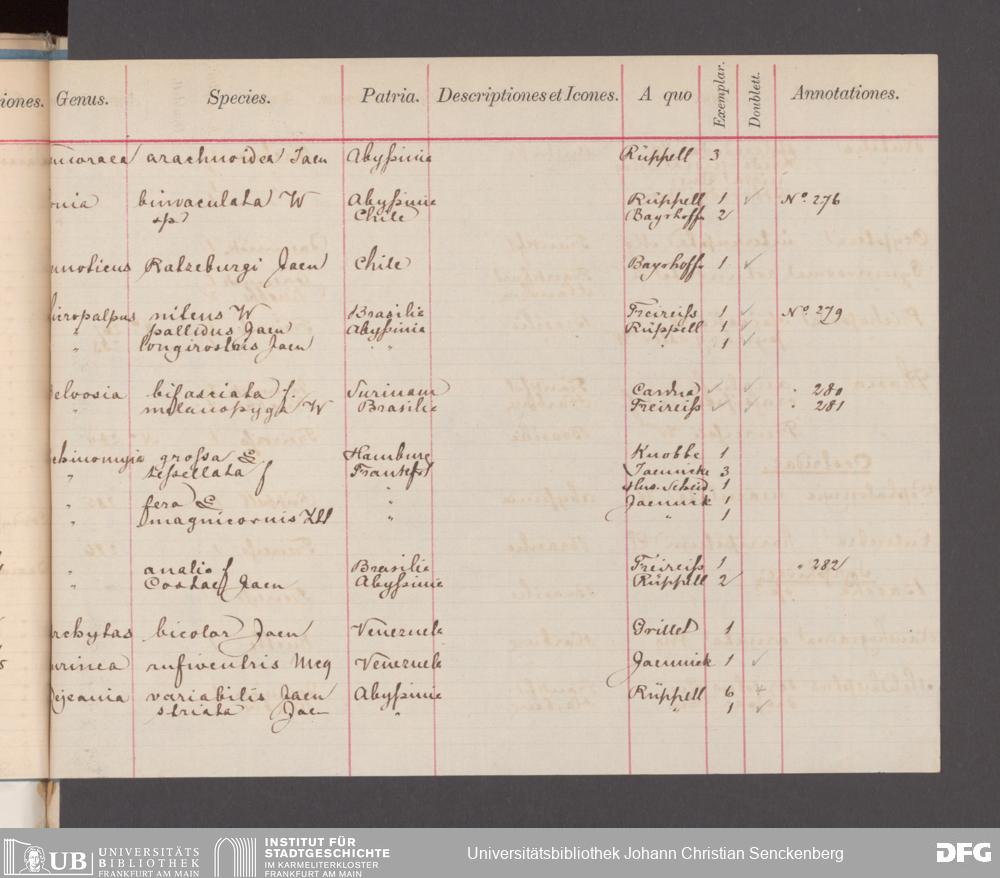 iones. Genus. Species. Patria. Descriptiones et Icones. A quo Exemplar. Doublett. Annotationes.
arachnoidea Jaen Abyßinie Rüppell 3
nia bimaculata W Abyßinie Rüppell 1 ✓ No. 276
sp Chile Bayrhoffr 2
Ratzeburgi Jaen Chile Bayrhoffr 1 ✓
hiropalpus nitens W Brasilie Freireiß 1 ✓ No. 279
" pallidus Jaen Abyßinie Rüppell 1 ✓
" longirostris Jaen " " " 1 ✓
elvosia bifasciata f. Surinam ✓ ✓ " 280
" melanopyga W Brasilie Freireiß ✓ ✓ " 281
chinomyia grossa L Hamburg Knobbe 1
" tessellata f Frankfrt Jaennicke 3
" 1
" fera L Jaennick 1
" magnicornis Ztt " " 1
" analis f Brasilie Freireiß 1 " 282
" Costae Jaen Abyßinie Rüppell 2
rchytas bicolor Jaen Venezuela Grillet 1
urinea rufiventris Mcq Venezuela Jaennick 1 ✓
ejeania variabilis Jaen Abyßinie Rüppell 6
striata Jaen " " 1 ✓
UB UNIVERSITÄTS
BIBLIOTHEK
FRANKFURT AM MAIN
INSTITUT FÜR
STADTGESCHICHTE
IM KARMELITERKLOSTER
FRANKFURT AM MAIN
Universitätsbibliothek Johann Christian Senckenberg
DFG